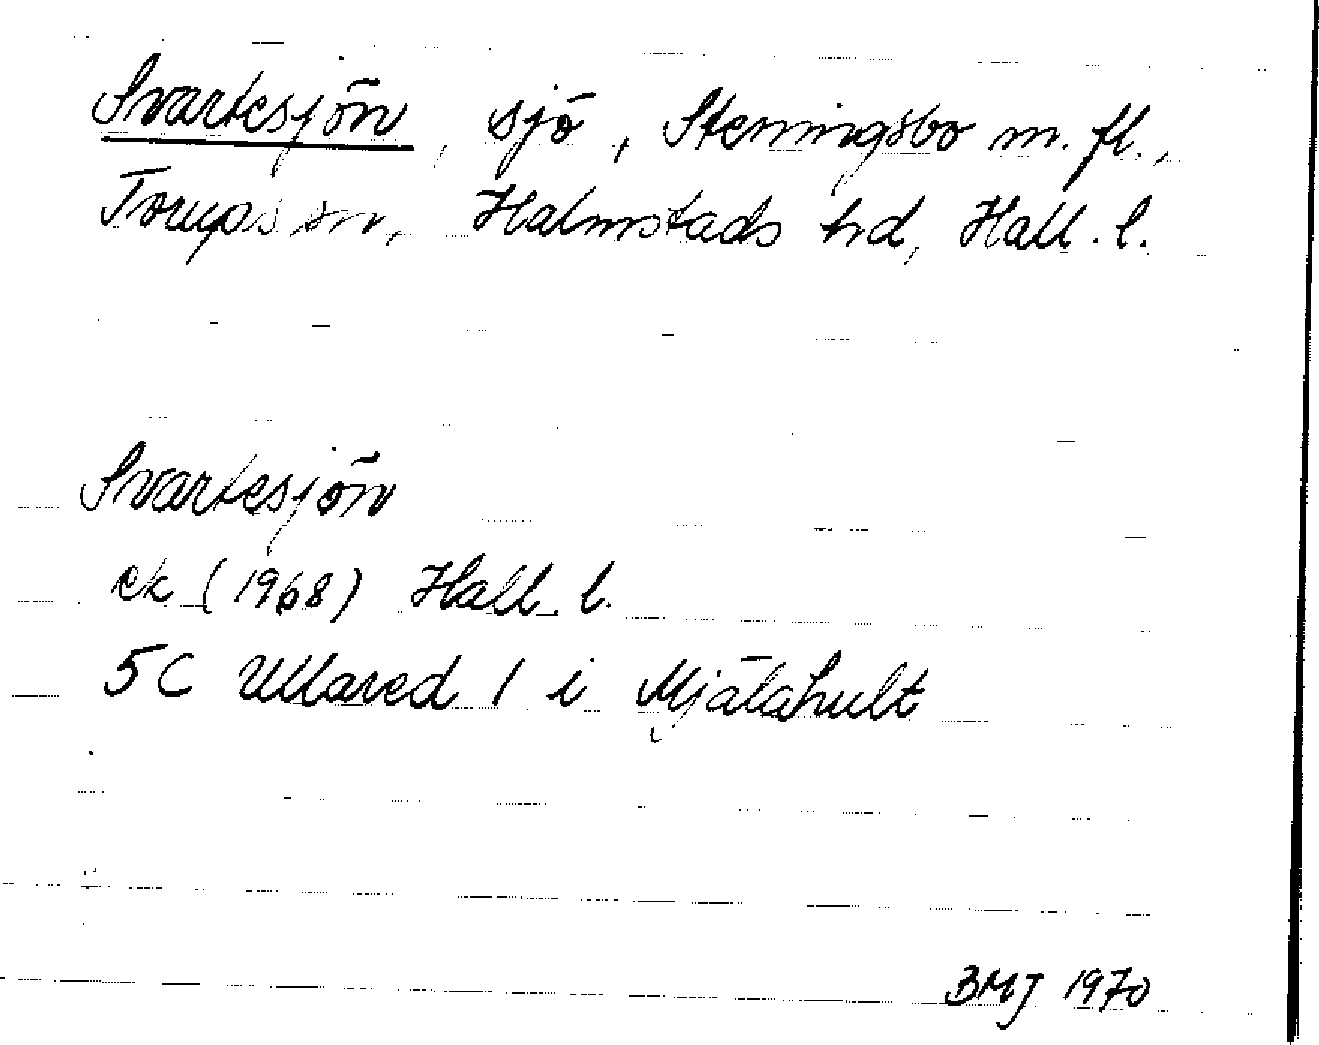 Svartesjön, sjö, Stenningsbo m. fl.,
Torups sn, Halmstads hd, Hall. l.
Svartesjön
ek (1968) Hall. l.
5C Ullared 1 i Mjälahult
BMJ 1970